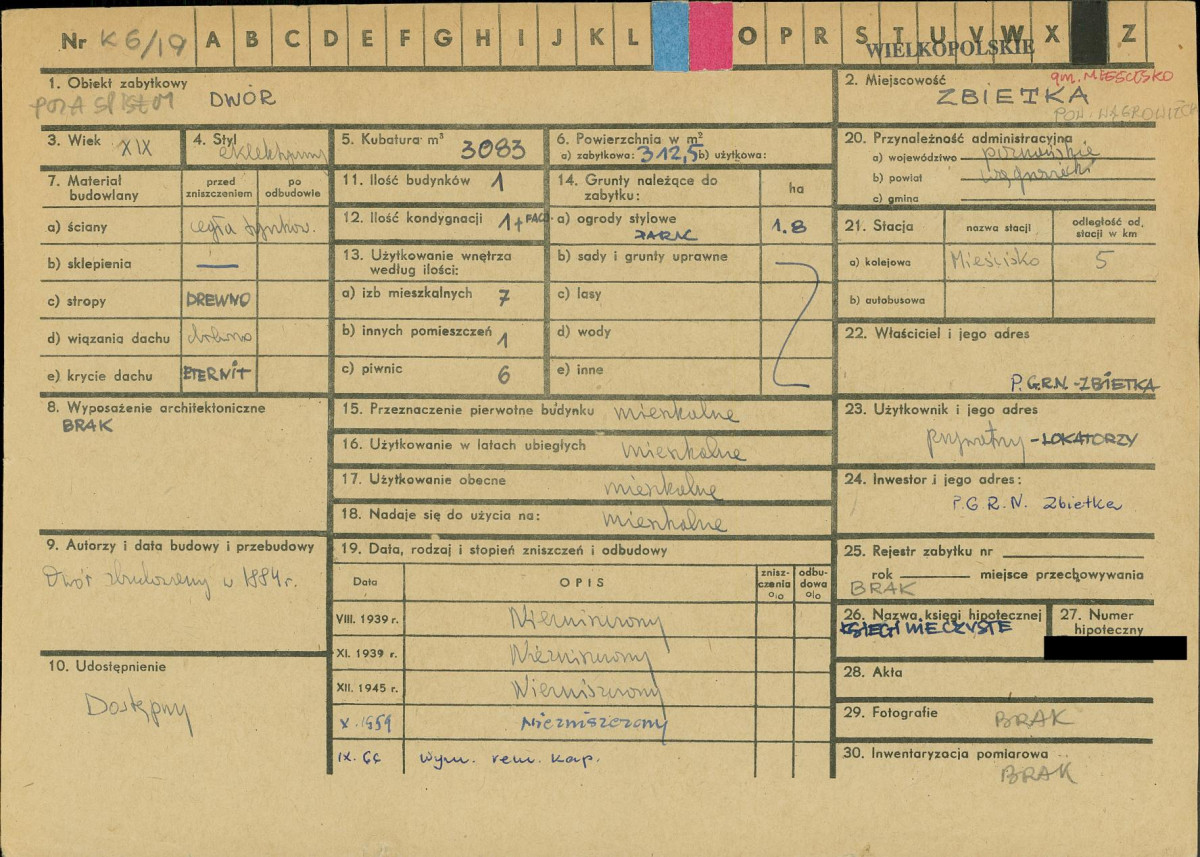 Nr K 6/19 A B C D E F G H I J K L O P R S T U V W X Z
WIELKOPOLSKIE
1. Obiekt zabytkowy
DWÓR
2. Miejscowość
gm. MIEŚCISKO
ZBIETKA
3. Wiek XIX
4. Styl eklektyczny
5. Kubatura m³ 3083
6. Powierzchnia w m²
a) zabytkowa: 312,5 b) użytkowa:
7. Materiał budowlany
przed zniszczeniem
po odbudowie
a) ściany cegła tynkow.
b) sklepienia —
c) stropy DREWNO
d) wiązania dachu drewno
e) krycie dachu ETERNIT
8. Wyposażenie architektoniczne
BRAK
9. Autorzy i data budowy i przebudowy
Dwór zbudowany w 1884 r.
10. Udostępnienie
Dostępny
11. Ilość budynków 1
12. Ilość kondygnacji 1+
13. Użytkowanie wnętrza
według ilości:
a) izb mieszkalnych 7
b) innych pomieszczeń 1
c) piwnic 6
14. Grunty należące do
zabytku:
ha
a) ogrody stylowe 1.8
PARK
b) sady i grunty uprawne
c) lasy
d) wody
e) inne
15. Przeznaczenie pierwotne budynku mieszkalne
16. Użytkowanie w latach ubiegłych mieszkalne
17. Użytkowanie obecne mieszkalne
18. Nadaje się do użycia na: mieszkalne
19. Data, rodzaj i stopień zniszczeń i odbudowy
Data
OPIS
znisz-
czenia
%
odbu-
dowa
%
VIII. 1939 r. Niezniszczony
XI. 1939 r. Niezniszczony
XII. 1945 r. Niezniszczony
X. 1959 Niezniszczony
IX. 66 wym. rem. kap.
20. Przynależność administracyjna
a) województwo poznańskie
b) powiat wągrowiecki
c) gmina
21. Stacja
nazwa stacji
odległość od
stacji w km
a) kolejowa Mieścisko 5
b) autobusowa
22. Właściciel i jego adres
P.G.R.N. - ZBIETKA
23. Użytkownik i jego adres
prywatny - LOKATORZY
24. Inwestor i jego adres:
P.G.R.N. Zbietka
25. Rejestr zabytku nr
rok miejsce przechowywania
BRAK
26. Nazwa księgi hipotecznej
KSIĘGI WIECZYSTE
27. Numer
hipoteczny
28. Akta
29. Fotografie BRAK
30. Inwentaryzacja pomiarowa
BRAK